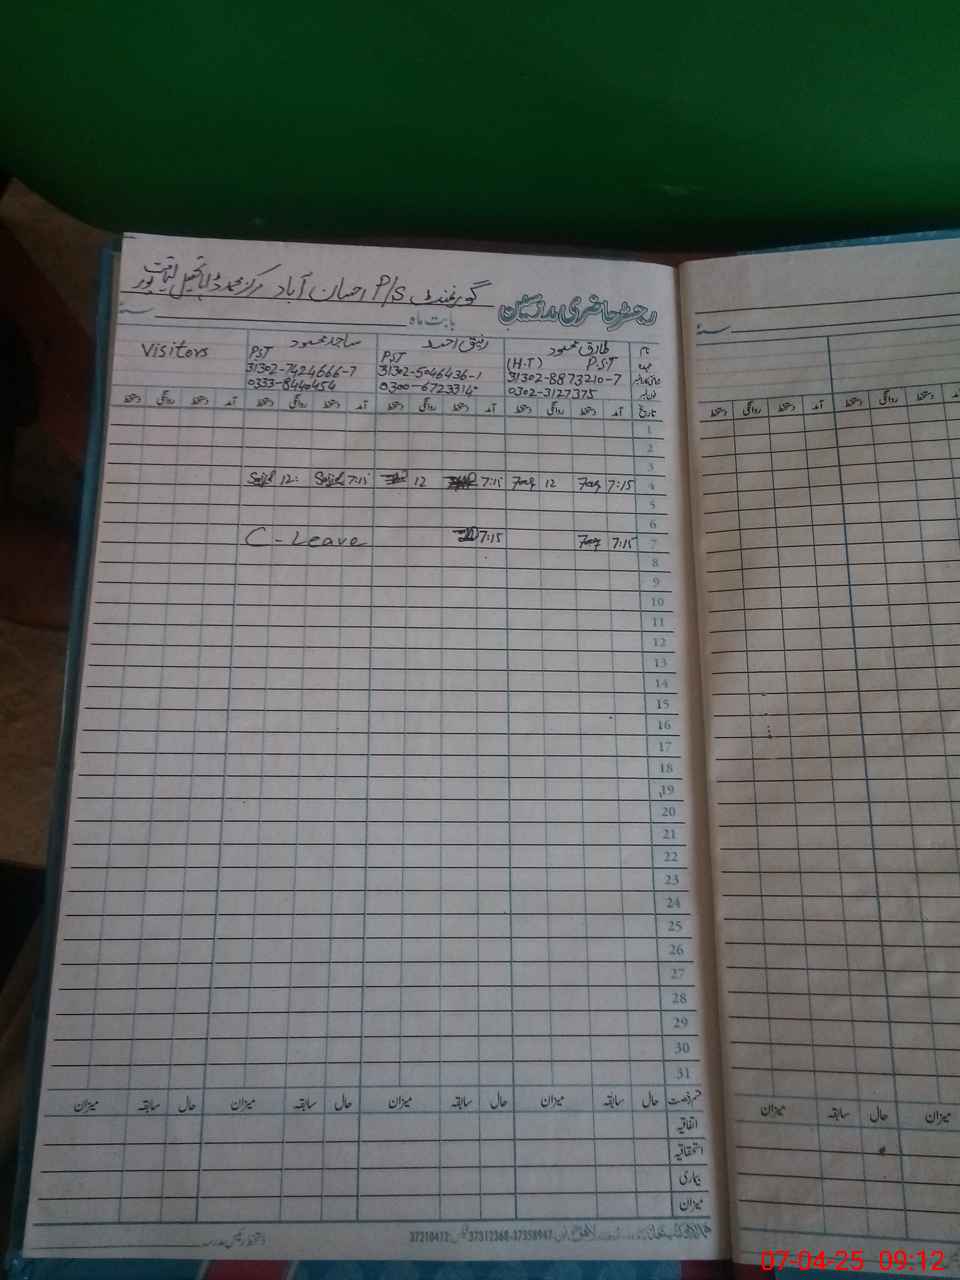 گورنمنٹ P/S احسان آباد مرکز محمد ڈاہا تحصیل لیاقت پور
رجسٹر حاضری مدرسین
بابت ماہ سنہ
نام طارق محمود رفیق احمد ساجد محمود Visitors
عہدہ P.S.T (H.T) PST P.S.T
31302-8873210-7 31302-5046436-1 31302-7424666-7
0302-3127375 0300-6723314 0333-8440454
تاریخ آمد دستخط روانگی دستخط آمد دستخط روانگی دستخط آمد دستخط روانگی دستخط آمد دستخط روانگی دستخط
1
2
3
4 7:15 12 7:15 12 7:15 Sajid 12: Sajid
5
6
7 7:15 7:15 C-Leave
8
9
10
11
12
13
14
15
16
17
18
19
20
21
22
23
24
25
26
27
28
29
30
31
قسم رخصت حال سابقہ میزان حال سابقہ میزان حال سابقہ میزان حال سابقہ میزان
اتفاقیہ
استحقاقیہ
بیماری
میزان
37312368-37358947 37210412
دستخط رئیس مدرسہ
سنہ
آمد دستخط روانگی دستخط آمد دستخط روانگی دستخط
حال سابقہ میزان
07-04-25 09:12